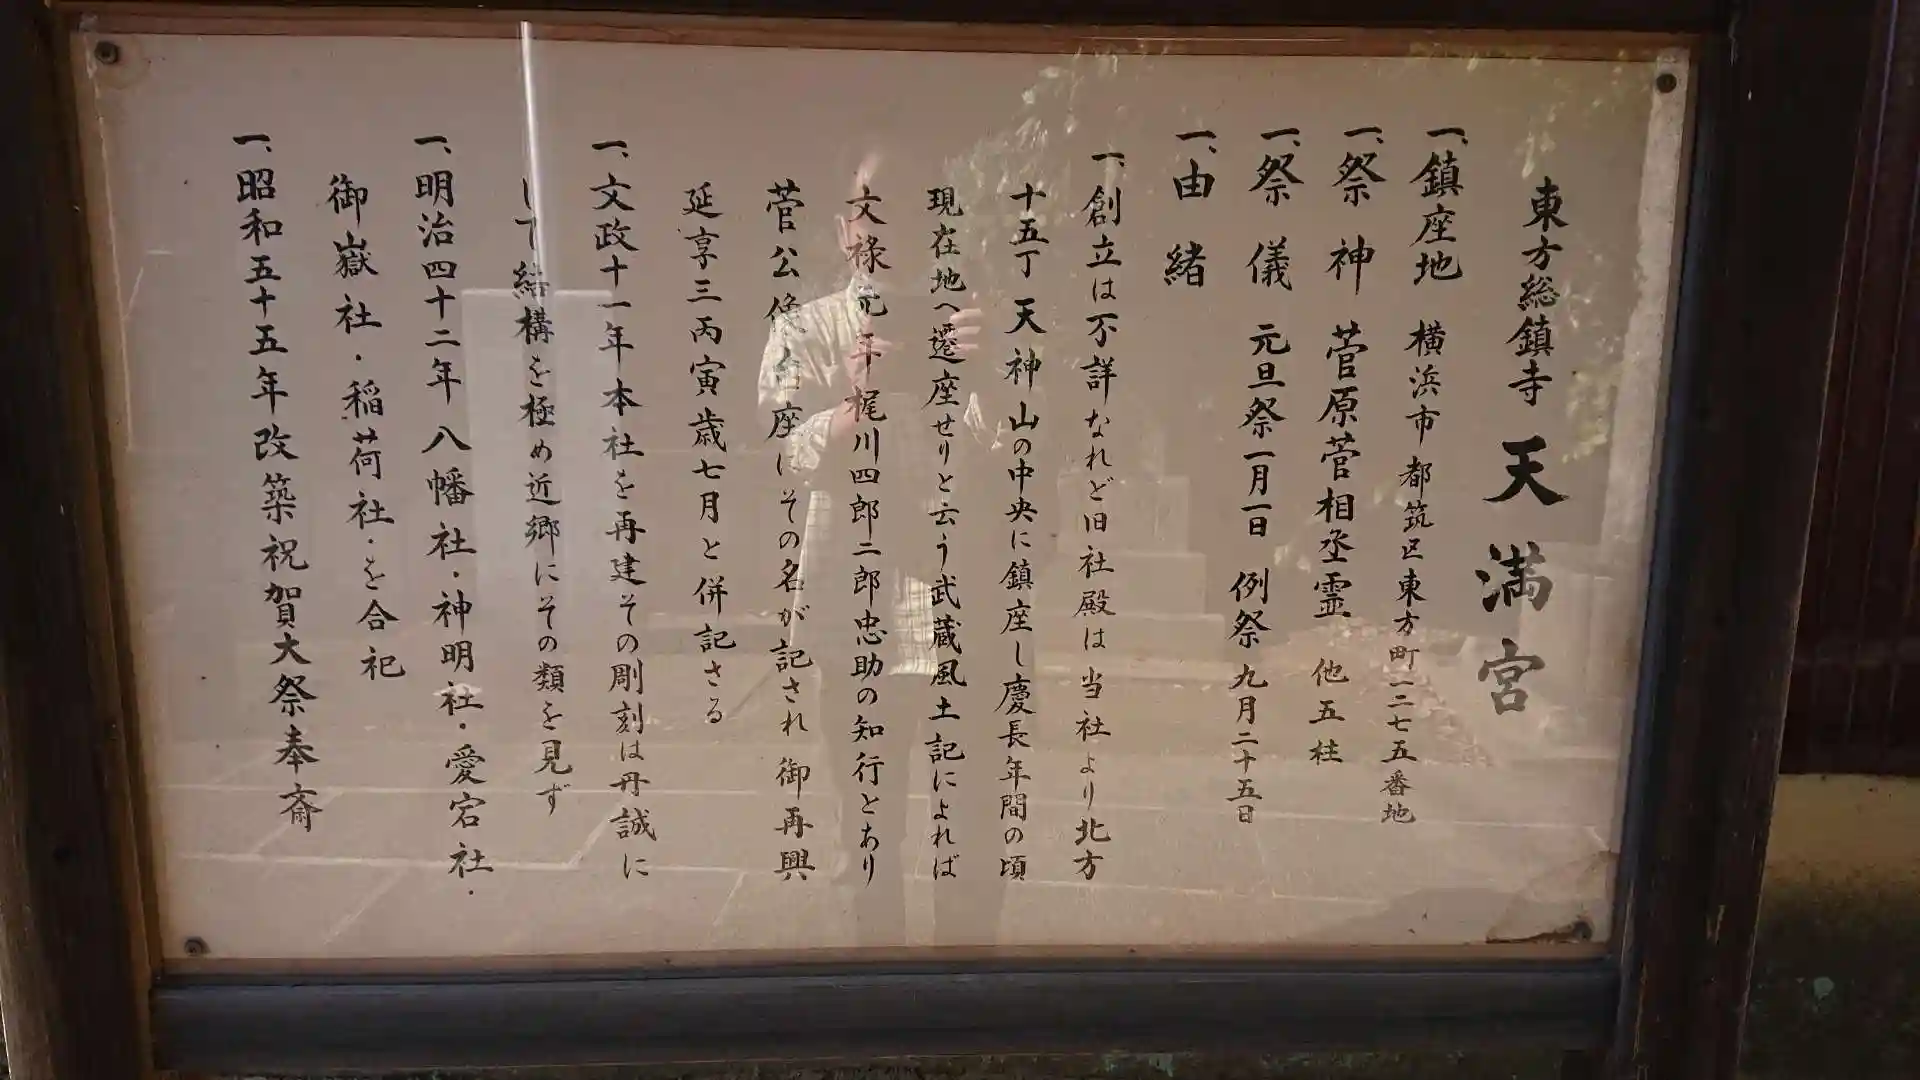 東方総鎮守 天満宮
一、鎮座地 横浜市都筑区東方町一二七五番地
一、祭神 菅原菅相丞霊 他五柱
一、祭儀 元旦祭一月一日 例祭九月二十五日
一、由緒
一、創立は不詳なれど旧社殿は当社より北方
十五丁天神山の中央に鎮座し慶長年間の頃
現在地へ遷座せりと云う武蔵風土記によれば
文禄元年梶川四郎二郎忠助の知行とあり
菅公像台座にその名が記され御再興
延享三丙寅歳七月と併記さる
一、文政十一年本社を再建その彫刻は丹誠に
して結構を極め近郷にその類を見ず
一、明治四十二年八幡社・神明社・愛宕社・
御嶽社・稲荷社・を合祀
一、昭和五十五年改築祝賀大祭奉斎